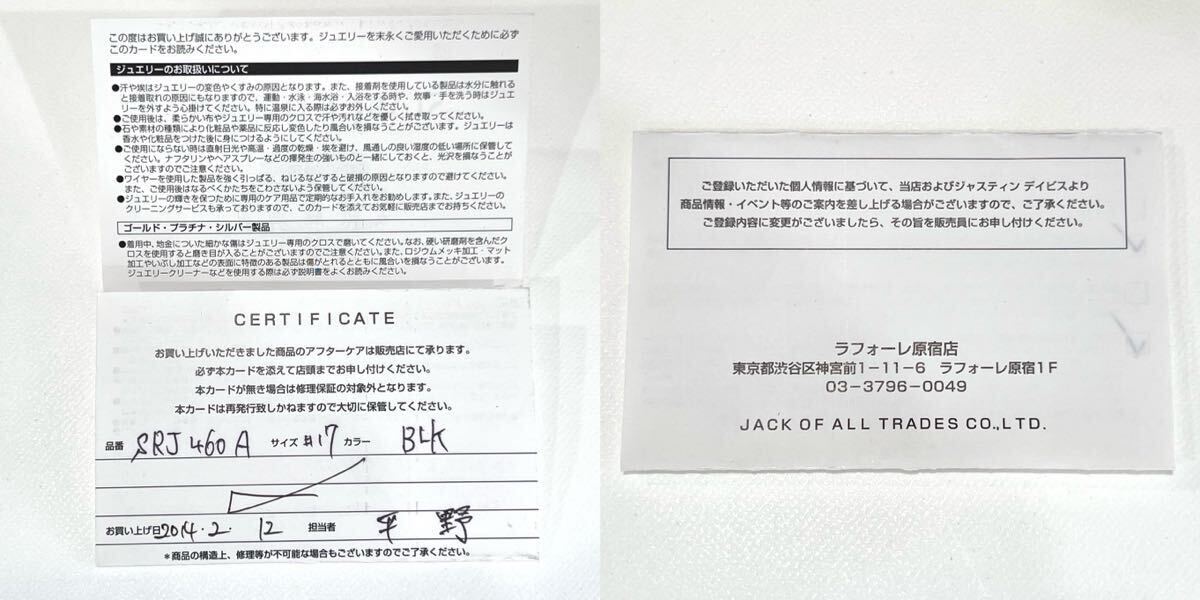 この度はお買い上げ誠にありがとうございます。ジュエリーを末永くご愛用いただくために必ず
このカードをお読みください。
ジュエリーのお取扱いについて
●汗や埃はジュエリーの変色やくすみの原因となります。また、接着剤を使用している製品は水分に触れる
と接着取れの原因にもなりますので、運動・水泳・海水浴・入浴をする時や、炊事・手を洗う時はジュエ
リーを外すよう心掛けてください。特に温泉に入る際は必ずお外しください。
●ご使用後は、柔らかい布やジュエリー専用のクロスで汗や汚れなどを優しく拭き取ってください。
●石や素材の種類により化粧品や薬品に反応し変色したり風合いを損なうことがございます。ジュエリーは
香水や化粧品をつけた後に身につけるようにしてください。
●ご使用にならない時は直射日光や高温・過度の乾燥・埃を避け、風通しの良い湿度の低い場所に保管して
ください。ナフタリンやヘアスプレーなどの揮発生の強いものと一緒にしておくと、光沢を損なうことが
ございますのでご注意ください。
●ワイヤーを使用した製品を強く引っぱる、ねじるなどすると破損の原因となりますので避けてください。
また、ご使用後はなるべくかたちをこわさないよう保管してください。
●ジュエリーの輝きを保つために専用のケア用品で定期的なお手入れをお勧めします。また、ジュエリーの
クリーニングサービスも承っておりますので、このカードを添えてお気軽に販売店までお持ちください。
ゴールド・プラチナ・シルバー製品
●着用中、地金についた細かな傷はジュエリー専用のクロスで磨いてください。なお、硬い研磨剤を含んだク
ロスを使用すると磨き目が入ることがございますのでご注意ください。また、ロジウムメッキ加工・マット
加工やいぶし加工などの表面に特徴のある製品は傷がとれるとともに風合いを損なうことがございます。
ジュエリークリーナーなどを使用する際は必ず説明書をよくお読みください。
CERTIFICATE
お買い上げいただきました商品のアフターケアは販売店にて承ります。
必ず本カードを添えて店頭までお申し付けください。
本カードが無き場合は修理保証の対象外となります。
本カードは再発行致しかねますので大切に保管してください。
品番 SRJ460A サイズ #17 カラー BLK
お買い上げ日 2014.2.12 担当者 平野
*商品の構造上、修理等が不可能な場合もございますのでご了承ください。
ご登録いただいた個人情報に基づいて、当店およびジャスティン デイビスより
商品情報・イベント等のご案内を差し上げる場合がございますので、ご了承ください。
ご登録内容に変更がございましたら、その旨を販売員にお申し付けください。
ラフォーレ原宿店
東京都渋谷区神宮前1-11-6 ラフォーレ原宿1F
03-3796-0049
JACK OF ALL TRADES CO.,LTD.